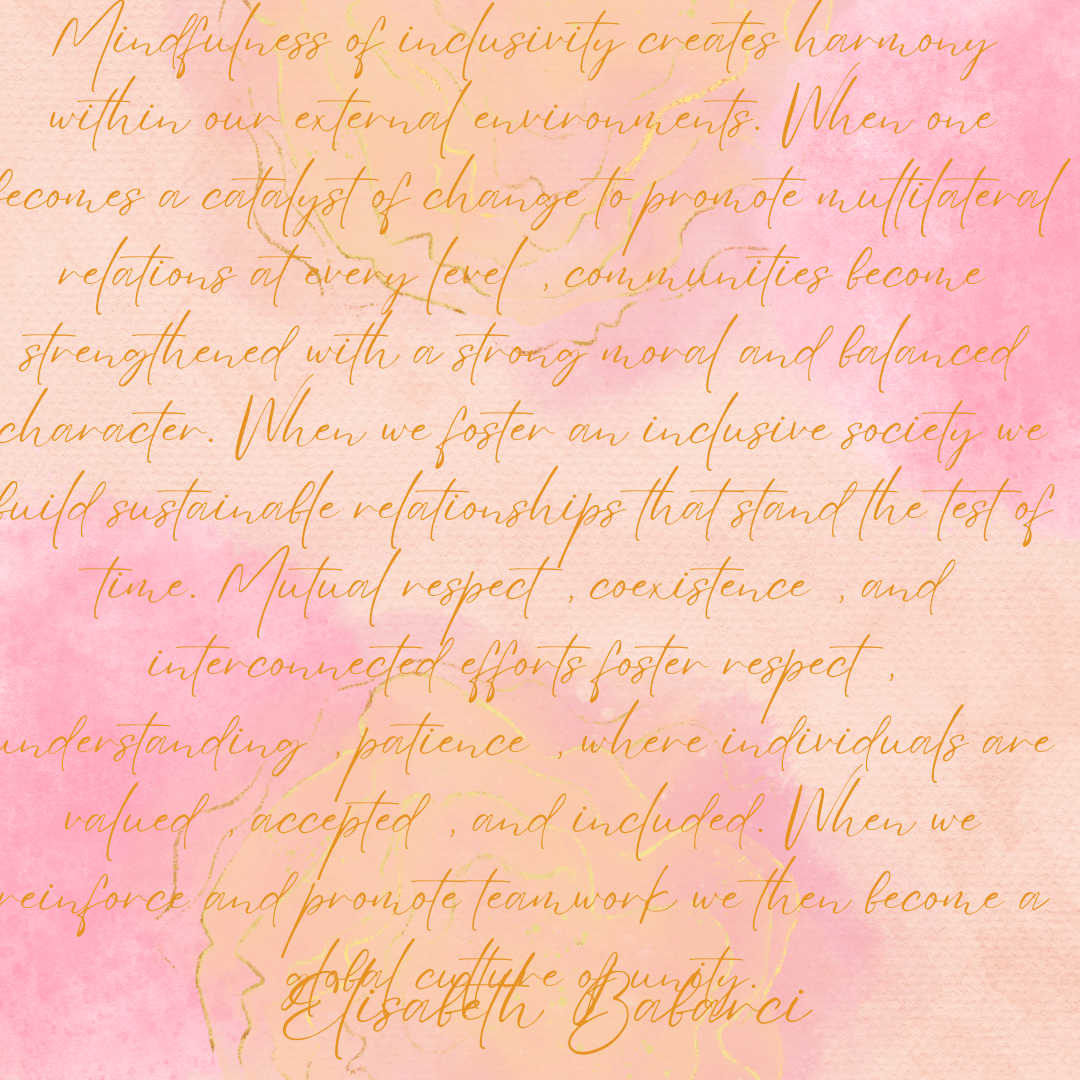 Mindfulness of inclusivity creates harmony
within our external environments. When one
becomes a catalyst of change to promote multilateral
relations at every level , communities become
strengthened with a strong moral and balanced
character. When we foster an inclusive society we
build sustainable relationships that stand the test of
time. Mutual respect , coexistence , and
interconnected efforts foster respect ,
understanding , patience , where individuals are
valued , accepted , and included. When we
reinforce and promote teamwork we then become a
global culture of unity.
Elisabeth Babarci